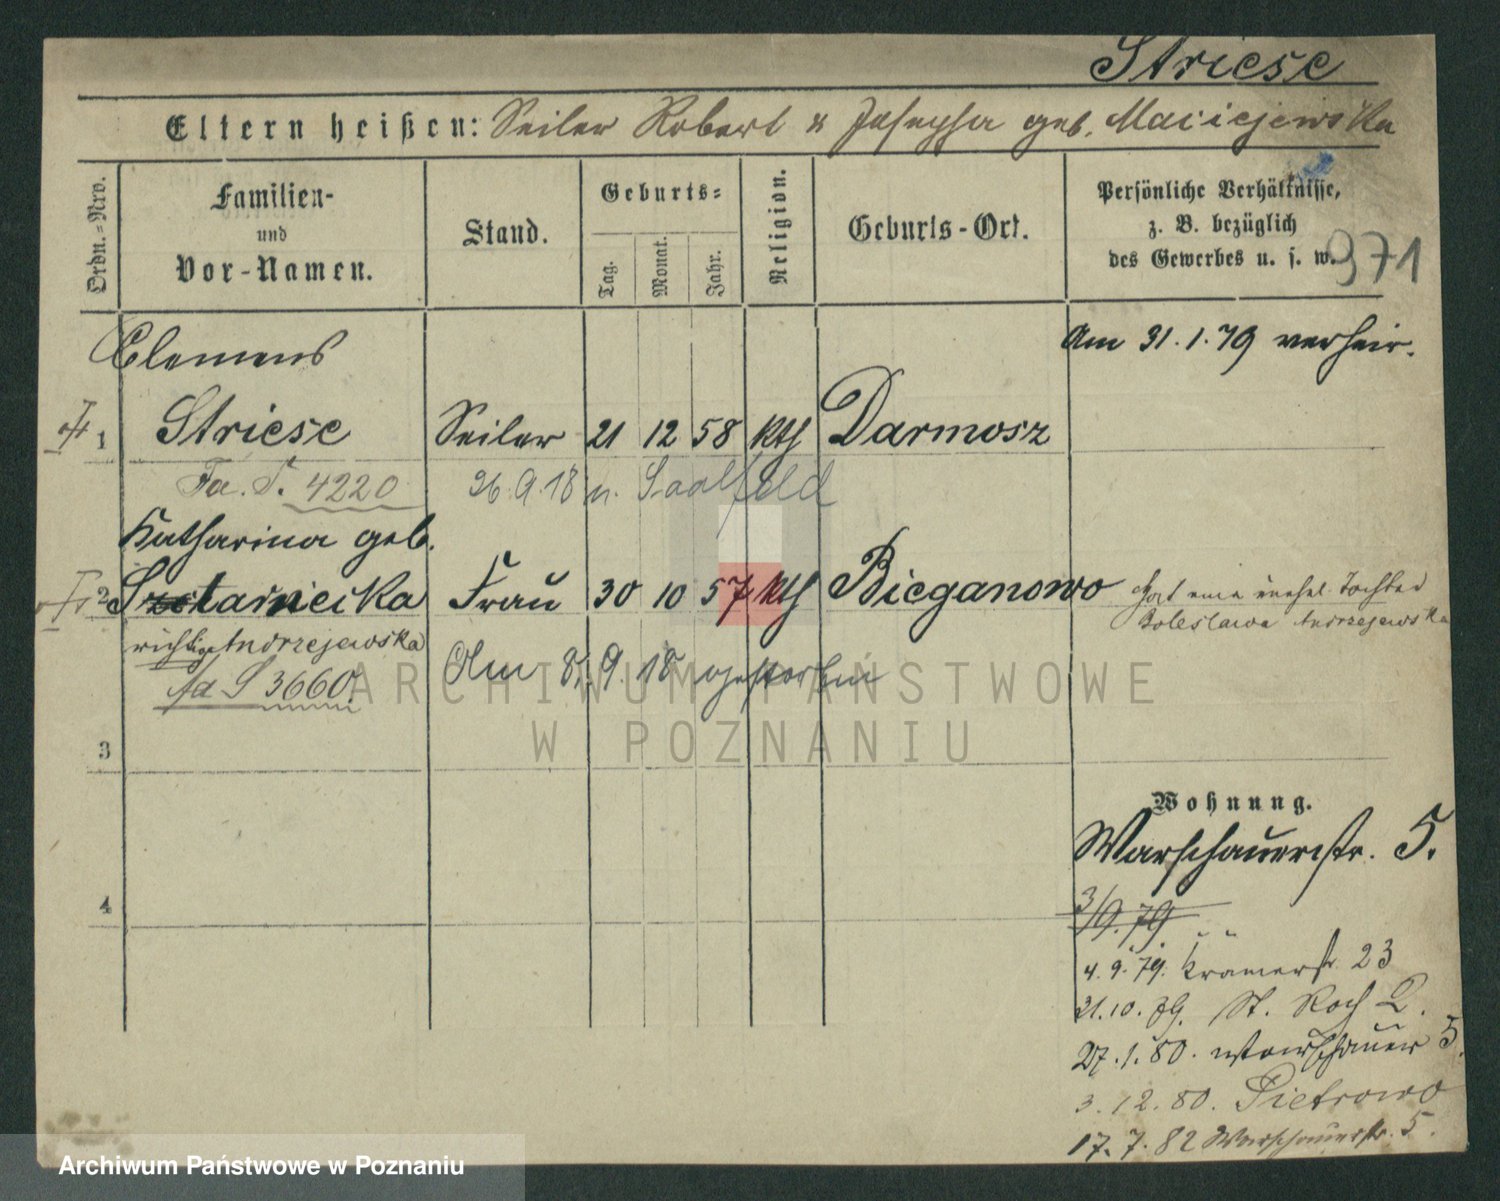 Striese
Eltern heißen: Seiler Robert u Josepha geb. Maciejewska
Ordn.-Nro.
Familien-
und
Vor-Namen.
Stand.
Geburts-
Tag.
Monat.
Jahr.
Religion.
Geburts-Ort.
Persönliche Verhältnisse,
z. B. bezüglich
des Gewerbes u. s. w.
971
Clemens
Am 31.1.79 verheir.
1 Striese Seiler 21 12 58 kth Darmosz
Fa. S. 4220 26.9.18 n. Saalfeld
Katharina geb.
2 Sztarnecka Frau 30 10 57 kth Bieganowo
hat eine unehel. Tochter
Boleslawa Andrzejewska
richtige Andrzejewska
fa S 3660.
Am 8.9.18 gestorben
3
4
Wohnung.
Warschauerstr. 5.
3/9.79
4.9.79. Kramerstr 23
21.10.79. St. Roch 2.
27.1.80. Warschauer 5.
3.12.80. Pietrowo
17.7.82 Warschauerstr. 5.
ARCHIWUM PAŃSTWOWE
W POZNANIU
Archiwum Państwowe w Poznaniu